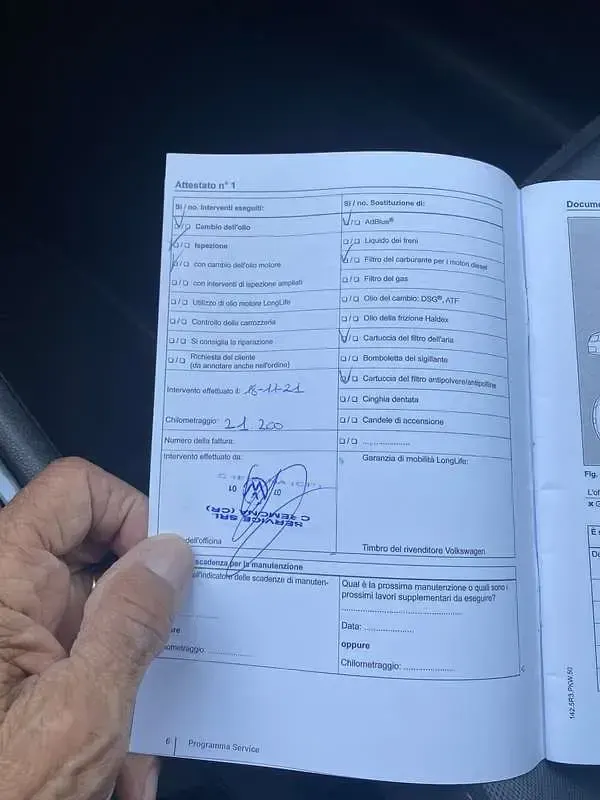 Attestato n° 1
Sì / no. Interventi eseguiti:
❏/❏ Cambio dell'olio
❏/❏ Ispezione
❏/❏ con cambio dell'olio motore
❏/❏ con interventi di ispezione ampliati
❏/❏ Utilizzo di olio motore LongLife
❏/❏ Controllo della carrozzeria
❏/❏ Si consiglia la riparazione
❏/❏ Richiesta del cliente
(da annotare anche nell'ordine)
Intervento effettuato il: 18-11-21
Chilometraggio: 21 200
Numero della fattura:
Intervento effettuato da:
10
SERVICE SRL
CREMONA (CR)
dell'officina
Sì / no. Sostituzione di:
❏/❏ AdBlue®
❏/❏ Liquido dei freni
❏/❏ Filtro del carburante per i motori diesel
❏/❏ Filtro del gas
❏/❏ Olio del cambio: DSG®, ATF
❏/❏ Olio della frizione Haldex
❏/❏ Cartuccia del filtro dell'aria
❏/❏ Bomboletta del sigillante
❏/❏ Cartuccia del filtro antipolvere/antipolline
❏/❏ Cinghia dentata
❏/❏ Candele di accensione
❏/❏ ..................
Garanzia di mobilità LongLife:
Timbro del rivenditore Volkswagen
scadenza per la manutenzione
all'indicatore delle scadenze di manuten-
Qual è la prossima manutenzione o quali sono i
prossimi lavori supplementari da eseguire?
Data: ..................
oppure
Chilometraggio: ..................
6 | Programma Service
Docume
Fig.
L'of
142.5R3.PKW.50